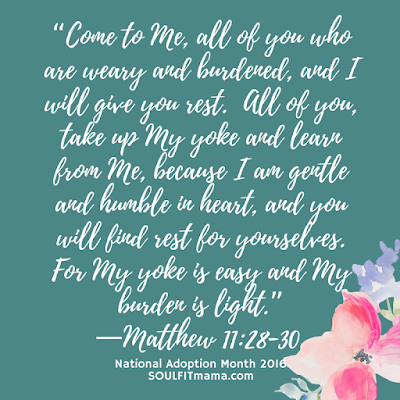 “Come to Me, all of you who
are weary and burdened, and I
will give you rest. All of you,
take up My yoke and learn
from Me, because I am gentle
and humble in heart, and you
will find rest for yourselves.
For My yoke is easy and My
burden is light.”
—Matthew 11:28-30
National Adoption Month 2016
SOULFITmama.com